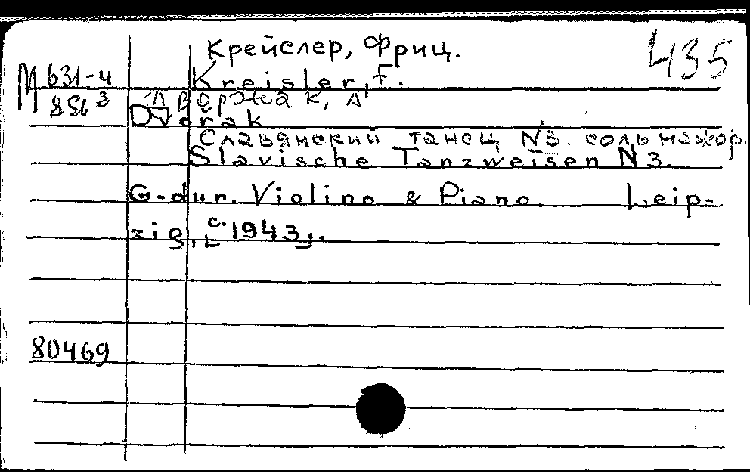 Крейслер, Фриц.
435
М 631-4
Kreisler, F.
856³
Дворжак, А
Dvorak
Славянский танец N3. соль мажор.
Slavische Tanzweisen N3.
G-dur. Violino & Piano. Leip-
zig, [c. 1943].
80469